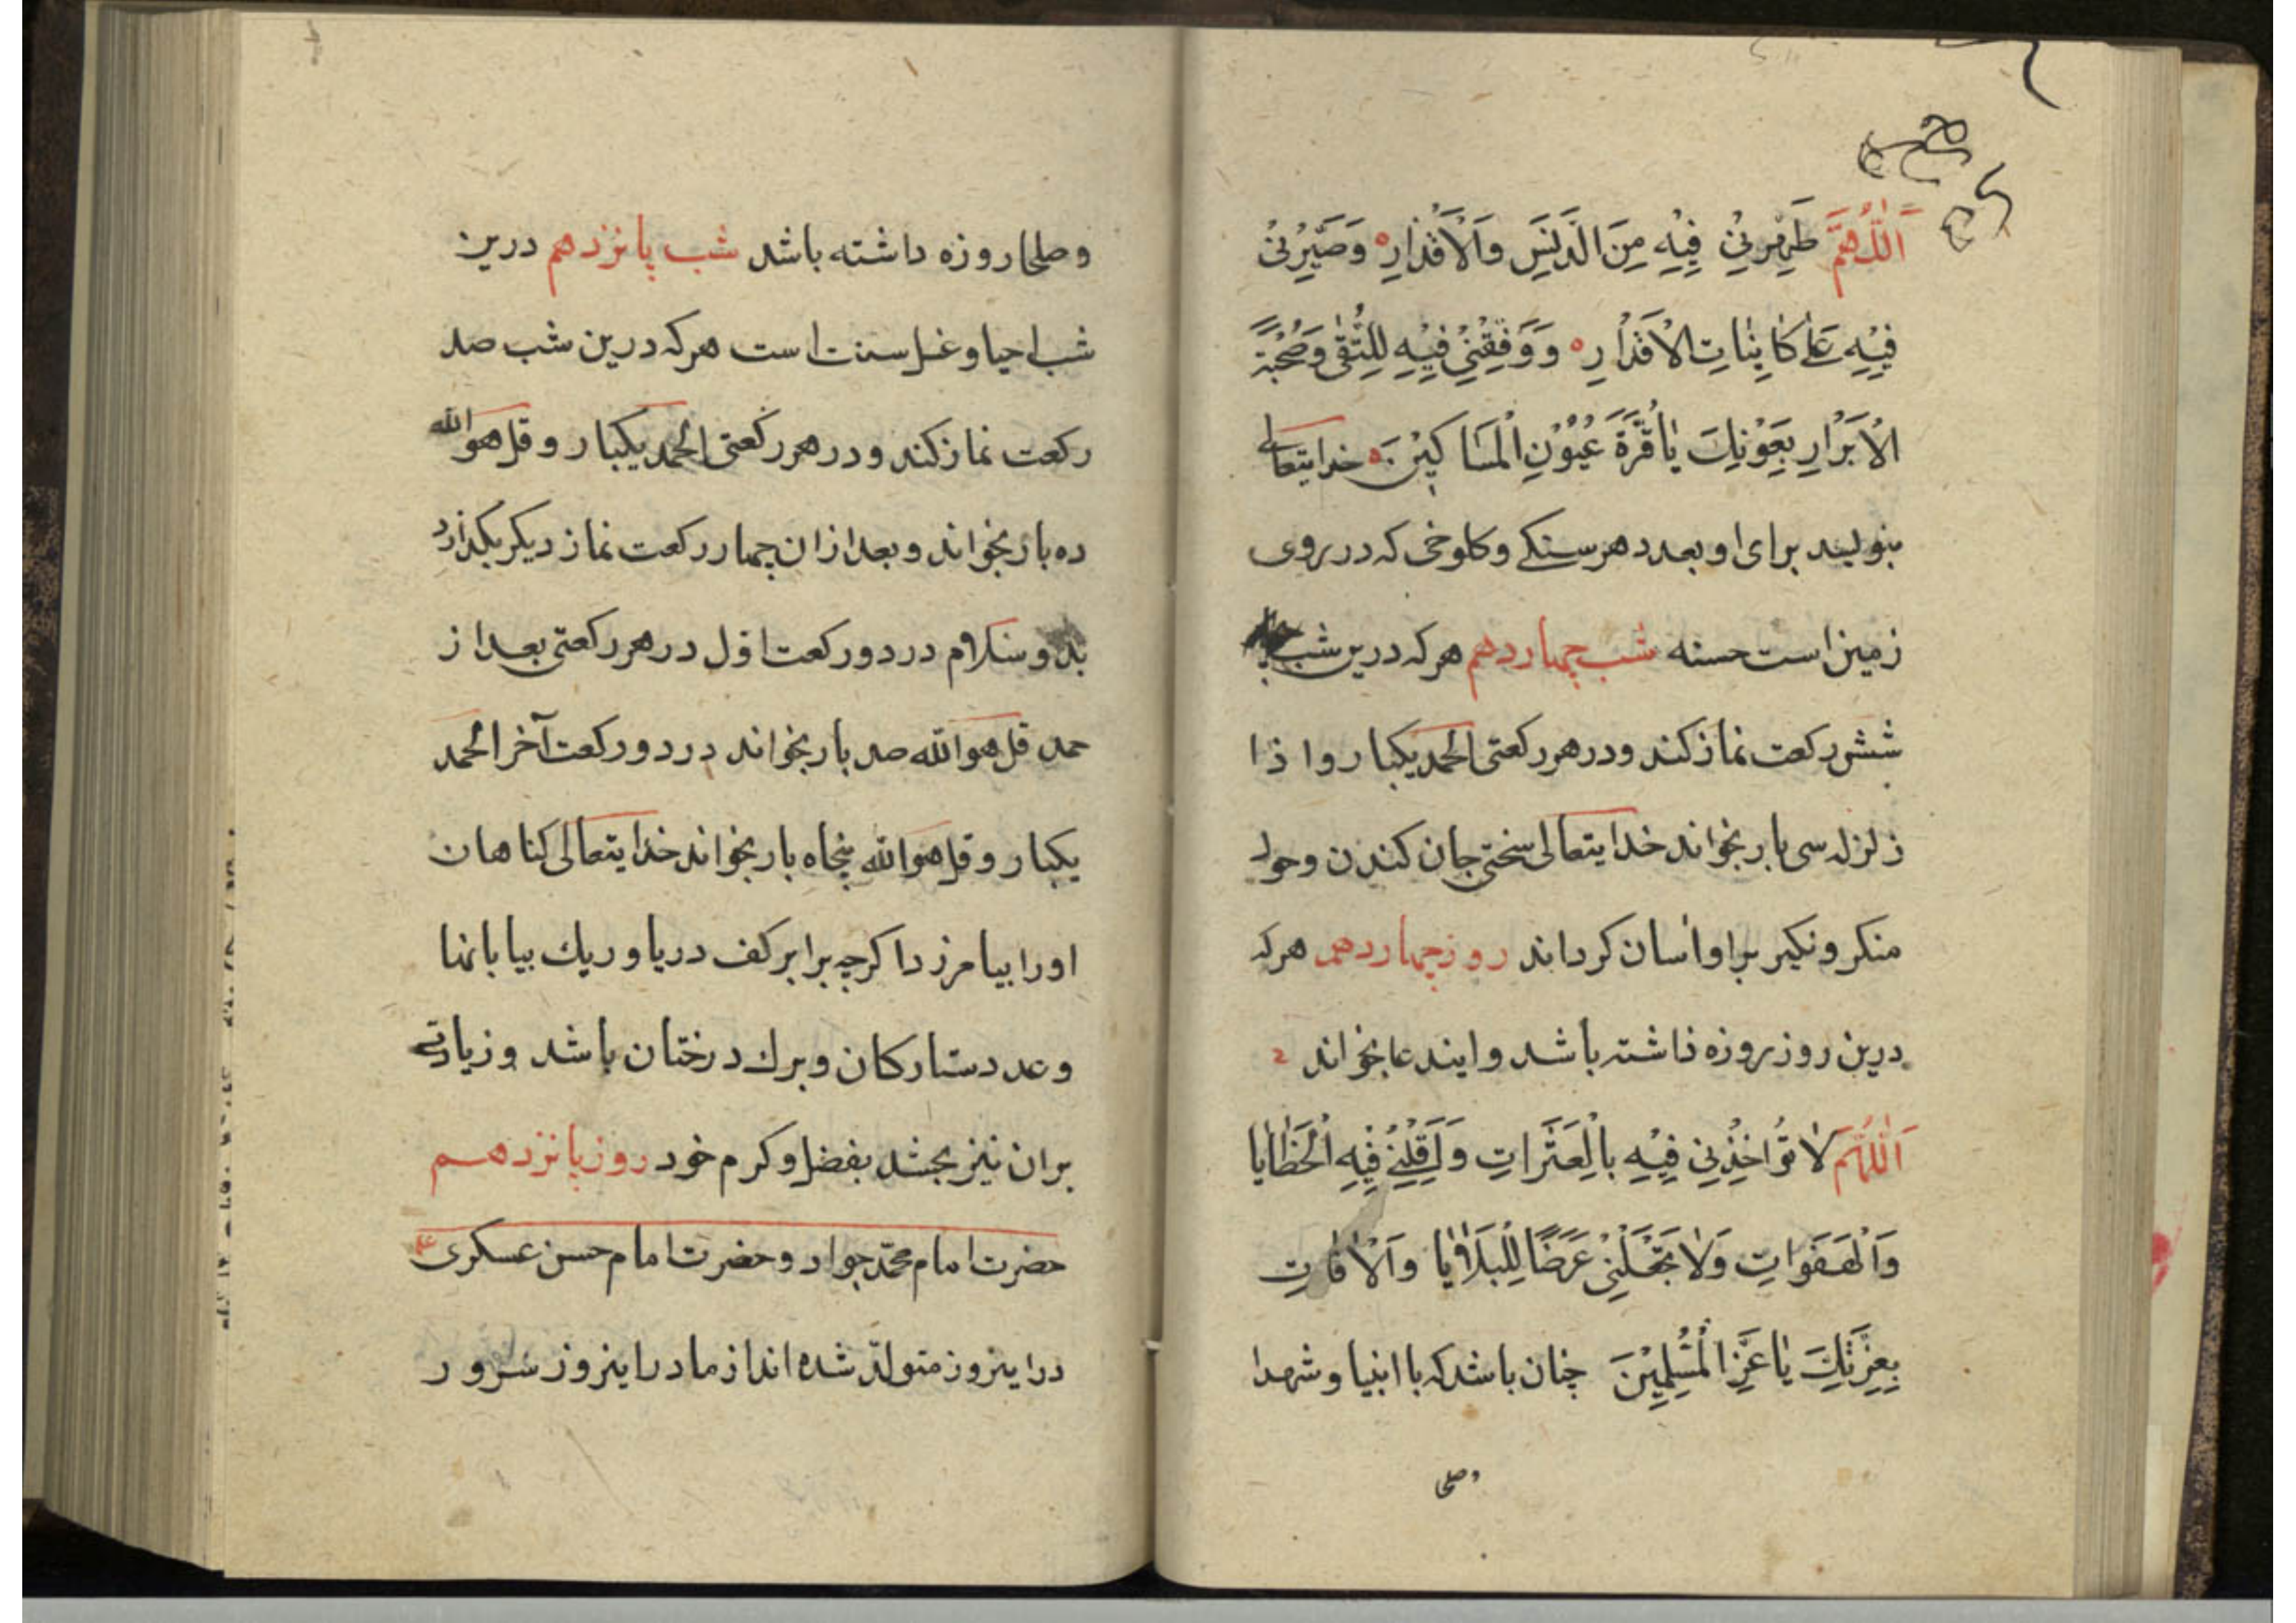 اَللّٰهُمَّ طَهِّرْنِیْ فِیْهِ مِنَ الدَّنَسِ وَالْاَقْذَارِ وَصَبِّرْنِیْ
فِیْهِ عَلٰی کَائِنَاتِ الْاَقْدَارِ وَوَفِّقْنِیْ فِیْهِ لِلتُّقٰی وَصُحْبَةِ
الْاَبْرَارِ بِعَوْنِكَ یَا قُرَّةَ عُیُوْنِ الْمَسَاکِیْنِ خدایتعالی
بنویسد برای او بعدد هر سنکی و کلوخی که در روی
زمین است حسنه شب چهاردهم هر که درین شب
شش رکعت نماز کند و در هر رکعتی الحمد یکبار و اذا
زلزله سی بار بخواند خدایتعالی سختی جان کندن و حول
منکر و نکیر براو اسان کرداند روز چهاردهم هر که
درین روز روزه داشته باشد و ایندعا بخواند
اَللّٰهُمَّ لَا تُؤَاخِذْنِیْ فِیْهِ بِالْعَثَرَاتِ وَاَقِلْنِیْ فِیْهِ الْخَطَایَا
وَالْهَفَوَاتِ وَلَا تَجْعَلْنِیْ غَرَضًا لِلْبَلَایَا وَالْاٰفَاتِ
بِعِزَّتِكَ یَا عِزَّ الْمُسْلِمِیْنَ چنان باشد که با انبیا و شهدا
وصلحا
وصلحا روزه داشته باشد شب پانزدهم درین
شب احیا و غسل سنت است هر که درین شب صد
رکعت نماز کند و در هر رکعتی الحمد یکبار و قل هو الله
ده بار بخواند و بعد از ان چهار رکعت نماز دیکر بکذارد
بدو سلام در دو رکعت اول در هر رکعتی بعد از
حمد قل هو الله صد بار بخواند در دو رکعت آخر الحمد
یکبار و قل هو الله پنجاه بار بخواند خدایتعالی کناهان
اورا بیامرزد اکرچه برابر کف دریا و ریك بیابانها
و عدد ستارکان و برك درختان باشد و زیادتی
بران نیز بخشد بفضل و کرم خود روز پانزدهم
حضرت امام محمّد جواد و حضرت امام حسن عسکری
در اینروز متولّد شده اند از مادر اینروز سرور